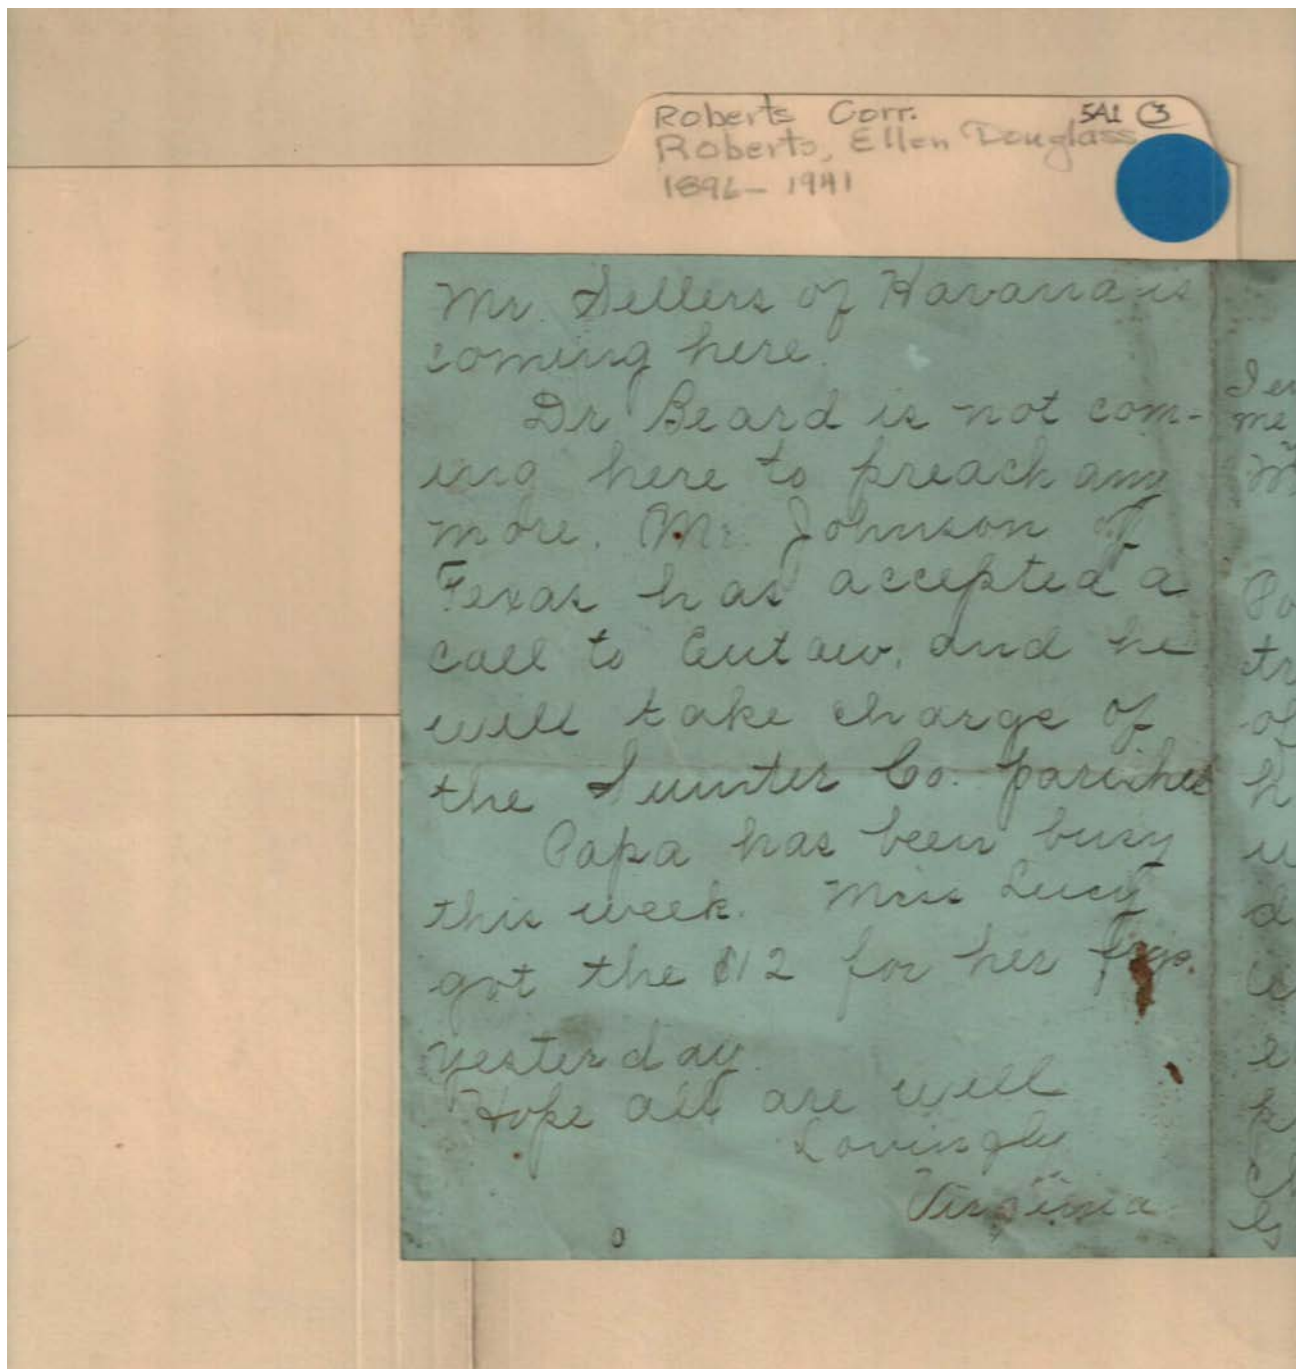 Roberts Corr. 5A1 3
Roberts, Ellen Douglass
1896- 1941
Mr. Sellers of Havana is
coming here.
Dr Beard is not com-
ing here to preach any
more. Mr. Johnson of
Texas has accepted a
call to Eutaw, and he
will take charge of
the Sumter Co. parishes
Papa has been busy
this week. Miss Lucy
got the $12 for her
yesterday.
Hope all are well
Lovingly
Virginia
me